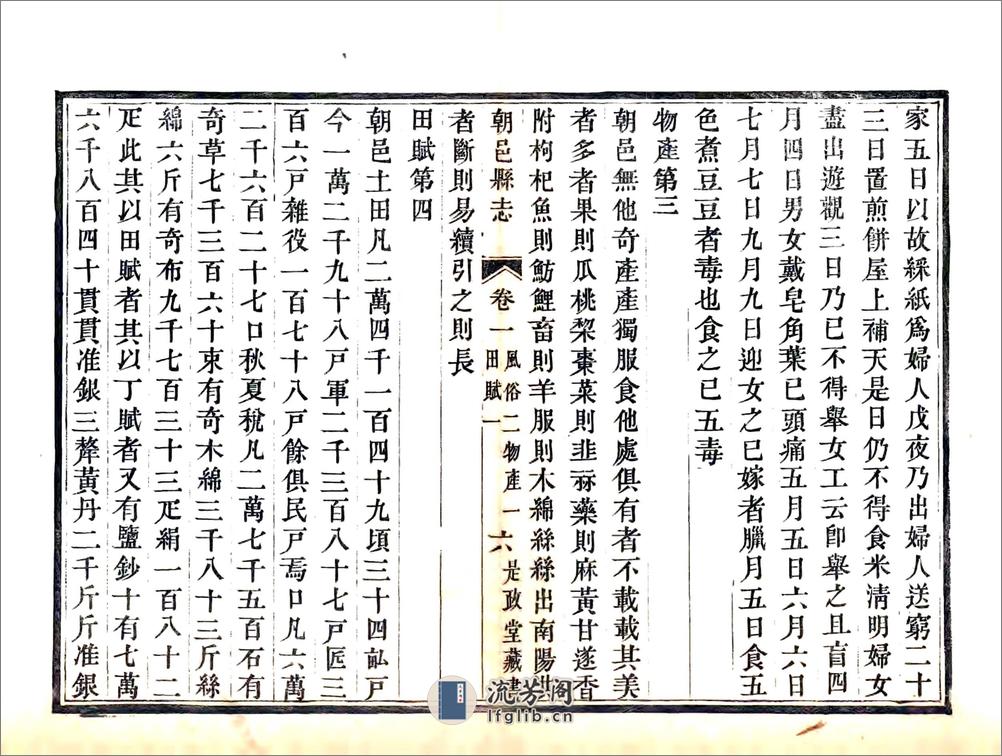 家五日以故綵紙爲婦人戊夜乃出婦人送窮二十
三日置煎餅屋上補天是日仍不得食米清明婦女
盡出遊觀三日乃已不得舉女工云卽舉之且盲四
月四日男女戴皂角葉已頭痛五月五日六月六日
七月七日九月九日迎女之已嫁者臘月五日食五
色煮豆豆者毒也食之已五毒
物產第三
朝邑無他奇產產獨服食他處俱有者不載載其美
者多者果則瓜桃棃棗菜則韭蒜藥則麻黃甘遂香
附枸杞魚則魴鯉畜則羊服則木綿絲絲出南陽
朝邑縣志
卷一
風俗二物產一
田賦一
六
是政堂藏書
者斷則易續引之則長
田賦第四
朝邑土田凡二萬四千一百四十九頃三十四畝戸
今一萬二千九十八戸軍二千三百八十七戸匠三
百六戸雜役一百七十八戸餘俱民戸焉口凡六萬
二千六百二十七口秋夏稅凡二萬七千五百石有
奇草七千三百六十束有奇木綿三千八十三斤絲
綿六斤有奇布九千七百三十三疋絹一百八十二
疋此其以田賦者其以丁賦者又有鹽鈔十有七萬
六千八百四十貫貫准銀三釐黃丹二千斤斤准銀
流芳阁
lfglib.cn